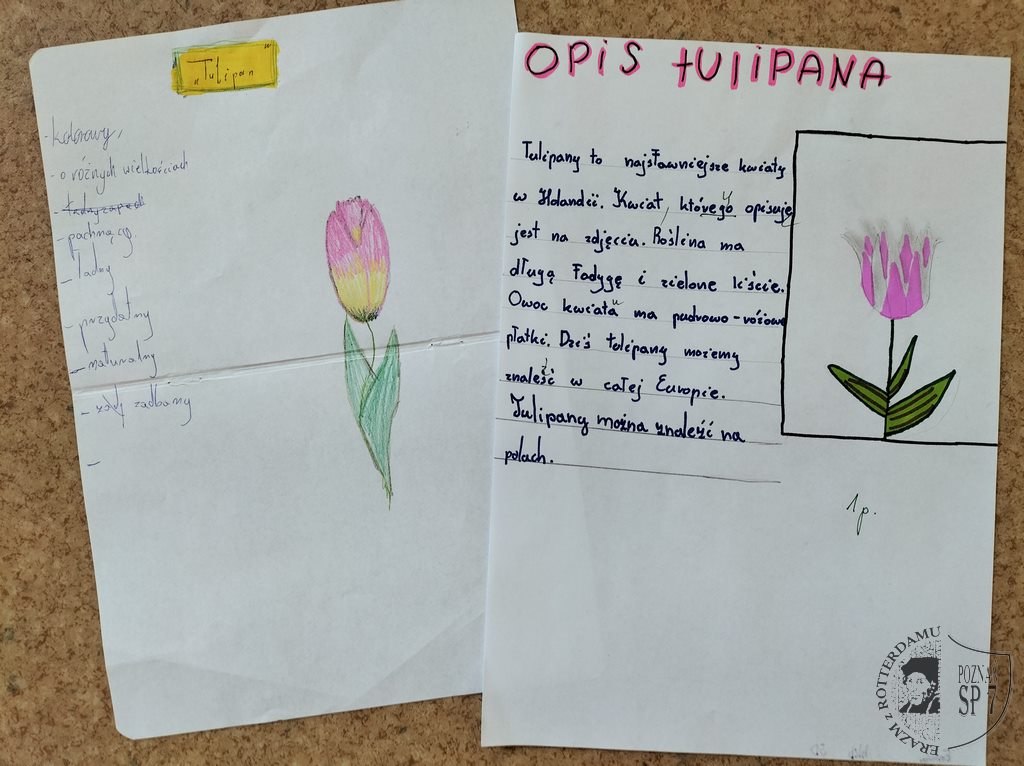 „Tulipan"
- kolorowy,
- o różnych wielkościach
- pachnący
- ładny
- przydatny
- naturalny
- zadbany
-
OPIS TULIPANA
Tulipany to najsławniejsze kwiaty
w Holandii. Kwiat, którego opisuję
jest na zdjęciu. Roślina ma
długą łodygę i zielone liście.
Owoc kwiata ma pudrowo-różowe
płatki. Dziś tulipany możemy
znaleść w całej Europie.
Tulipany można znaleźć na
polach.
1p.
ERAZM z ROTTERDAMU
POZNAŃ
SP 7